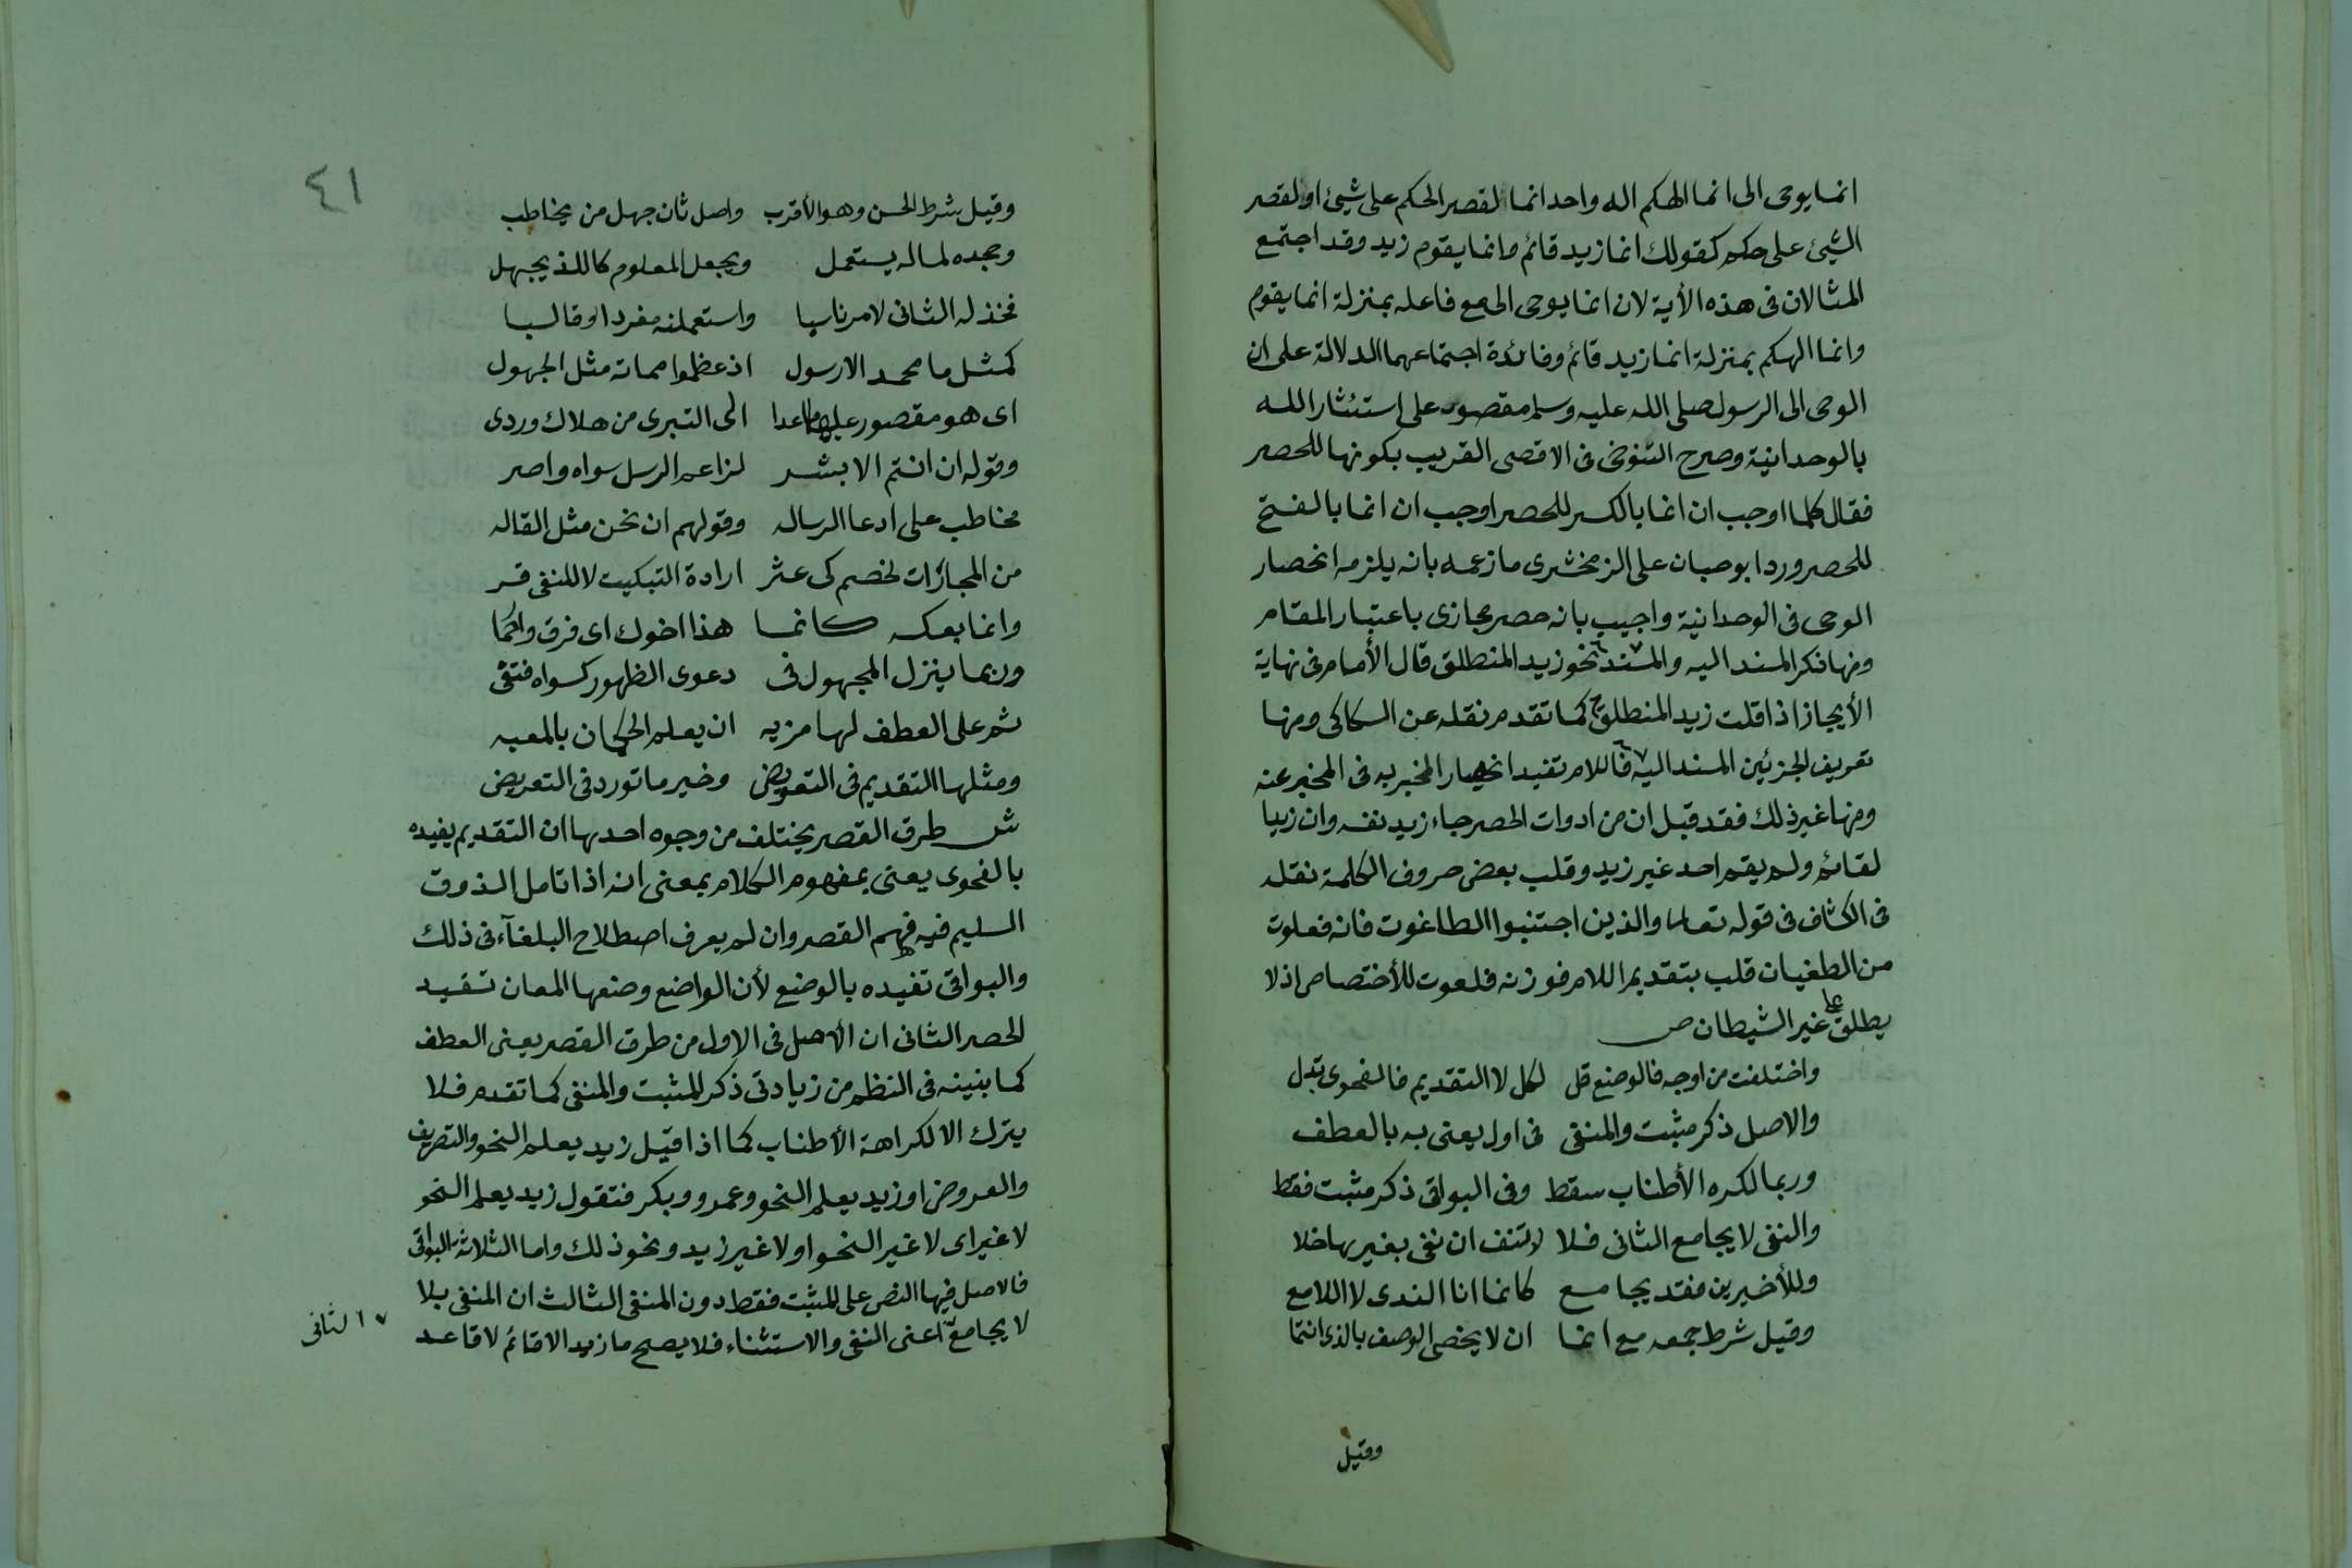 انما يوحى الى انما الهكم اله واحد انما لقصر الحكم على شيئ او لقصر
الشيئ على حكم كقولك انما زيد قائم وانما يقوم زيد وقد اجتمع
المثالان فى هذه الأية لان انما يوحى الى مع فاعله بمنزلة انما يقوم
وانما الهكم بمنزلة انما زيد قائم وفائدة اجتماعهما الدلالة على ان
الوحى الى الرسول صلى الله عليه وسلم مقصور على استئثار الله
بالوحدانية وصرح التنوخى فى الاقصى القريب بكونها للحصر
فقال كلما اوجب ان انما بالكسر للحصر اوجب ان انما بالفتح
للحصر ورد ابو حيان على الزمخشرى ما زعمه بانه يلزمه انحصار
الوحى فى الوحدانية واجيب بانه حصر مجازى باعتبار المقام
ومنها فكر المسند اليه والمسند نحو زيد المنطلق قال الأمام فى نهاية
الأيجاز اذا قلت زيد المنطلق كما تقدم نقله عن السكاكى ومنها
تعريف الجزئين المسند اليه فاللام تفيد انحصار المخبر به فى المخبر عنه
ومنها غير ذلك فقد قيل ان من ادوات الحصر جاء زيد نفسه وان زيدا
لقائم ولم يقم احد غير زيد وقلب بعض حروف الكلمة نقله
فى الكشاف فى قوله تعالى والذين اجتنبوا الطاغوت فانه فعلوت
من الطغيان قلب بتقديم اللام فوزنه فلعوت للأختصاص اذ لا
يطلق على غير الشيطان ص
واختلفت من اوجه فالوضع قل لكل لا التقديم فالفحوى تبدل
والاصل ذكر مثبت والمنفى فى اول يعنى به بالعطف
وربما لكره الأطناب سقط وفى البواقى ذكر مثبت فقط
والنفى لا يجامع الثانى فلا لم تنتف ان نفى بغيرها خلا
وللأخيرين فقد يجامع كانما انا الندى لا اللامع
وقيل شرط جمعه مع انما ان لا يخص الوصف بالذى انتما
وقيل
٤١
وقيل شرط الحسن وهو الأقرب واصل ثان جهل من يخاطب
وجحده لما له يستعمل ويجعل المعلوم كاللذ يجهل
فخذ له الثانى لامر ناسبا واستعملنه مفردا وقالبا
كمثل ما محمد الا رسول اذ عظموا مماته مثل الجهول
اى هو مقصور عليها ما عدا الى التبرى من هلاك وردى
وقوله ان انتم الا بشر لزاعم الرسل سواه واصر
مخاطب على ادعا الرساله وقولهم ان نحن مثل القاله
من المجازات لخصم كى عثر ارادة التبكيت لا للنفى قر
وانما بعكسه كانما هذا اخوك اى فرق وانما
وربما ينزل المجهول فى دعوى الظهور كسواه فتفى
ثم على العطف لها مزيه ان يعلم الحكمان بالمعيه
ومثلها التقديم فى التعويض وخير ما تورد فى التعريض
ش طرق القصر يختلف من وجوه احدها ان التقديم يفيده
بالفحوى يعنى بمفهوم الكلام بمعنى انه اذا تامل الذوق
السليم فيه فهم القصر وان لم يعرف اصطلاح البلغآء فى ذلك
والبواقى تفيده بالوضع لأن الواضع وضعها لمعان تفيد
الحصر الثانى ان الأصل فى الاول من طرق القصر يعنى العطف
كما بنينه فى النظم من زيادتى ذكر للمثبت والمنفى كما تقدم فلا
يترك الا لكراهة الأطناب كما اذا قيل زيد يعلم النحو والتصريف
والعروض او زيد يعلم النحو وعمرو وبكر فتقول زيد يعلم النحو
لا غير اى لا غير النحو او لا غير زيد ونحو ذلك واما الثلاثة البواقى
فالاصل فيها النص على المثبت فقط دون المنفى الثالث ان المنفى بلا
لا يجامع اعنى النفى والاستثناء فلا يصح ما زيد الا قائم لا قاعد
الثانى